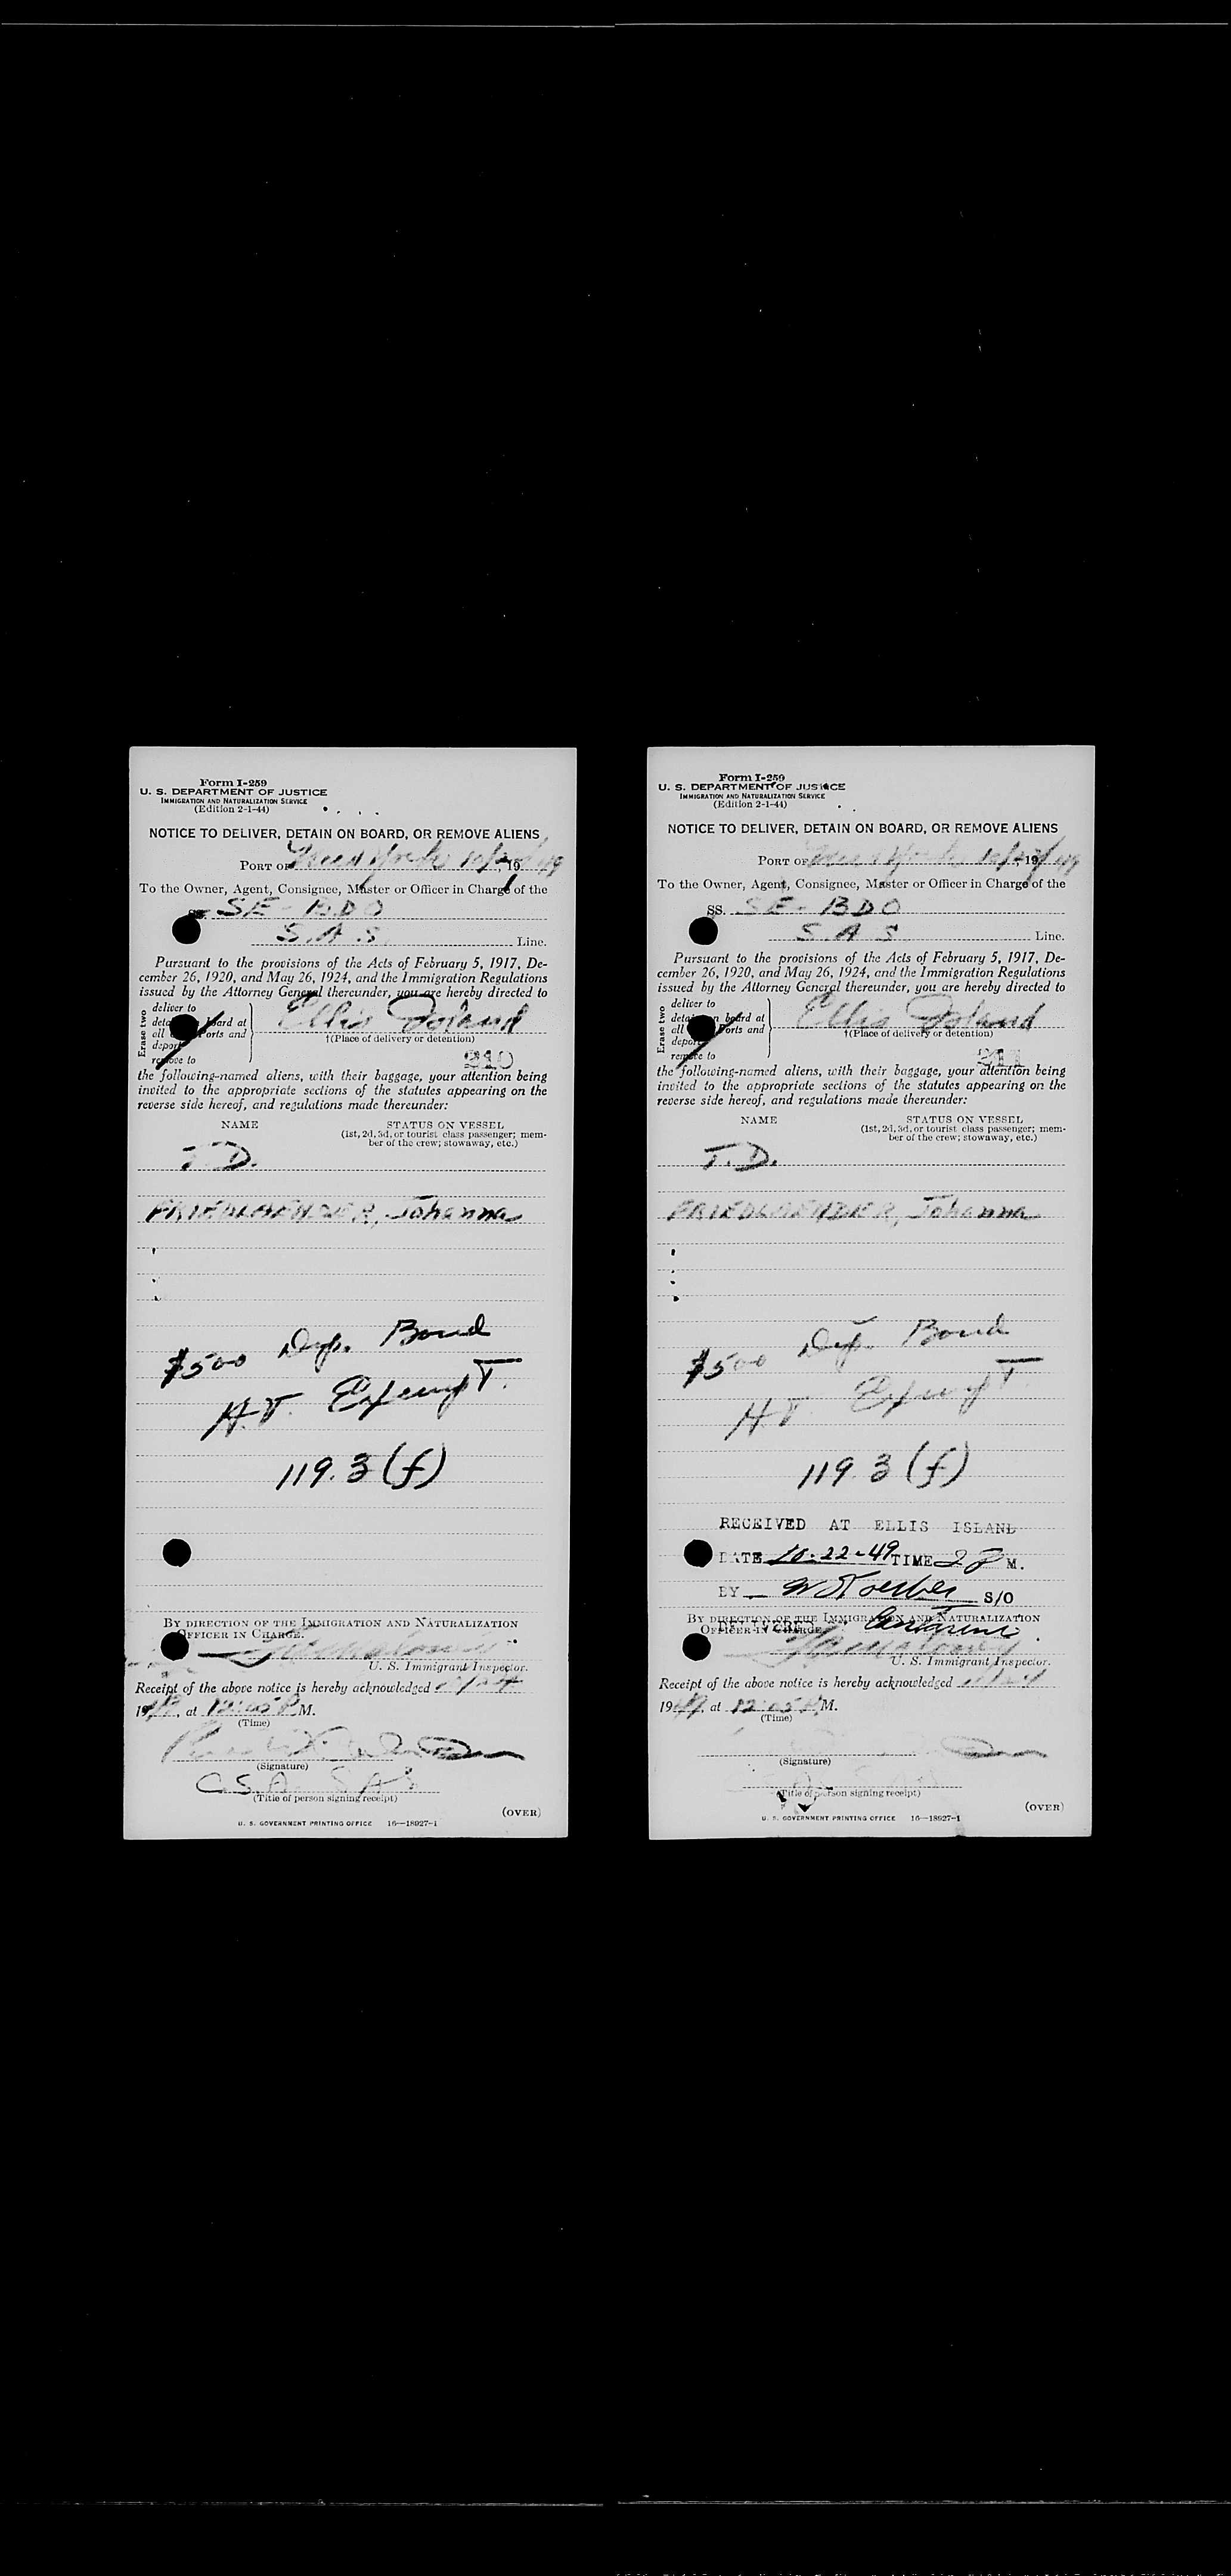 Form I-259
U. S. DEPARTMENT OF JUSTICE
IMMIGRATION AND NATURALIZATION SERVICE
(Edition 2-1-44)
NOTICE TO DELIVER, DETAIN ON BOARD, OR REMOVE ALIENS
PORT OF New York 10/ , 1949
To the Owner, Agent, Consignee, Master or Officer in Charge of the
SS. SE-BDO
S.A.S. Line.
Pursuant to the provisions of the Acts of February 5, 1917, De-
cember 26, 1920, and May 26, 1924, and the Immigration Regulations
issued by the Attorney General thereunder, you are hereby directed to
Erase two
deliver to
board at
all ports and
deport
remove to
Ellis Island
†(Place of delivery or detention)
210
the following-named aliens, with their baggage, your attention being
invited to the appropriate sections of the statutes appearing on the
reverse side hereof, and regulations made thereunder:
NAME STATUS ON VESSEL
(1st, 2d, 3d, or tourist class passenger; mem-
ber of the crew; stowaway, etc.)
T.D.
FRIEDLAENDER, Johanna
$500 Dep. Bond
H.T. Exempt.
119.3(f)
BY DIRECTION OF THE IMMIGRATION AND NATURALIZATION
OFFICER IN CHARGE.
U. S. Immigrant Inspector.
Receipt of the above notice is hereby acknowledged
1949, at 12:05 P M.
(Time)
(Signature)
C.S.A. SAS
(Title of person signing receipt)
(OVER)
U. S. GOVERNMENT PRINTING OFFICE 16—18927-1
Form I-259
U. S. DEPARTMENT OF JUSTICE
IMMIGRATION AND NATURALIZATION SERVICE
(Edition 2-1-44)
NOTICE TO DELIVER, DETAIN ON BOARD, OR REMOVE ALIENS
PORT OF New York 10/ , 1949
To the Owner, Agent, Consignee, Master or Officer in Charge of the
SS. SE-BDO
S.A.S. Line.
Pursuant to the provisions of the Acts of February 5, 1917, De-
cember 26, 1920, and May 26, 1924, and the Immigration Regulations
issued by the Attorney General thereunder, you are hereby directed to
Erase two
deliver to
detain on board at
all ports and
deport
remove to
Ellis Island
†(Place of delivery or detention)
211
the following-named aliens, with their baggage, your attention being
invited to the appropriate sections of the statutes appearing on the
reverse side hereof, and regulations made thereunder:
NAME STATUS ON VESSEL
(1st, 2d, 3d, or tourist class passenger; mem-
ber of the crew; stowaway, etc.)
T.D.
FRIEDLAENDER, Johanna
$500 Dep. Bond
H.T. Exempt.
119.3(f)
RECEIVED AT ELLIS ISLAND
DATE 10-22-49 TIME 2 P M.
BY S/O
BY DIRECTION OF THE IMMIGRATION AND NATURALIZATION
OFFICER IN CHARGE.
U. S. Immigrant Inspector.
Receipt of the above notice is hereby acknowledged
1949, at 12:05 P M.
(Time)
(Signature)
(Title of person signing receipt)
(OVER)
U. S. GOVERNMENT PRINTING OFFICE 16—18927-1